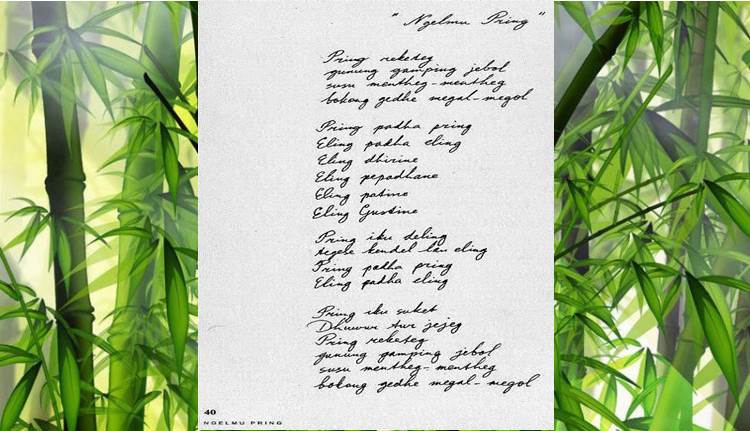 " Ngelmu Pring "
Pring reketeg
gunung gamping jebol
susu mentheg-mentheg
bokong gedhe megal-megol
Pring padha pring
Eling padha eling
Eling dhirine
Eling pepadhane
Eling patine
Eling Gustine
Pring iku deling
tegese kendel lan eling
Pring padha pring
Eling padha eling
Pring iku suket
Dhuwur tur jejeg
Pring reketeg
gunung gamping jebol
susu mentheg-mentheg
bokong gedhe megal-megol
40
NGELMU PRING